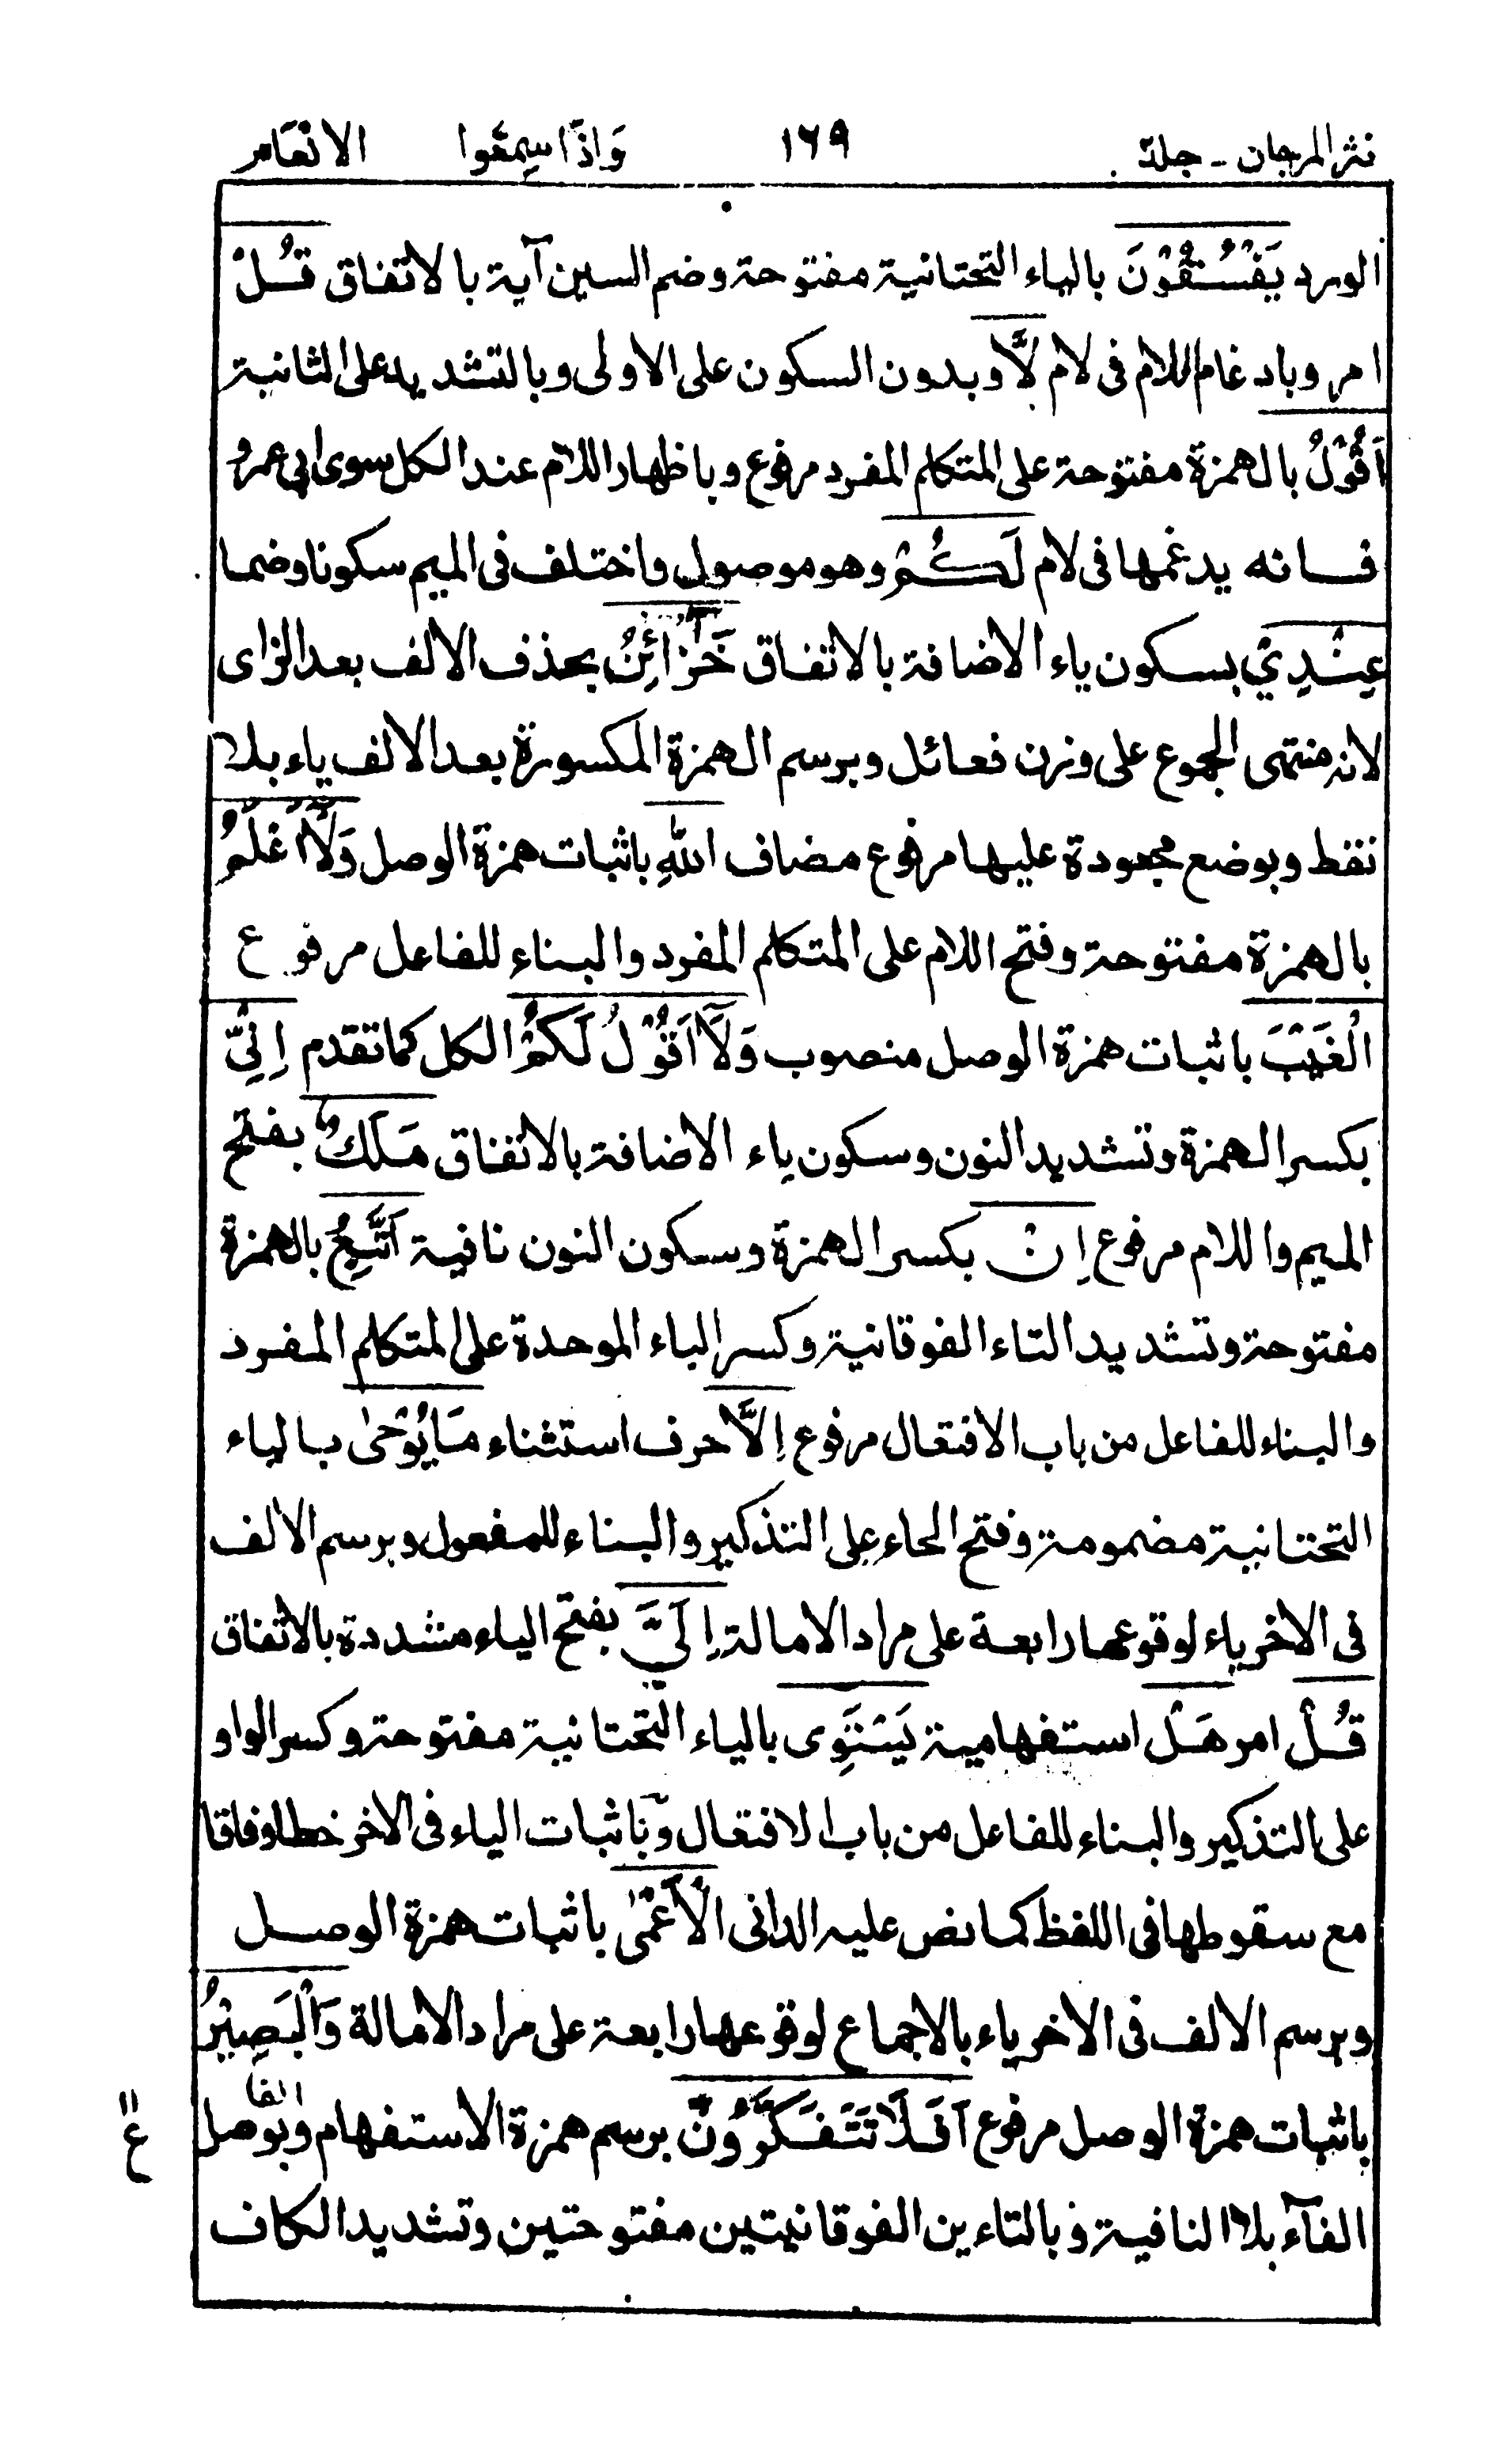 نثر المرجان - جلد
١٦٩
وَاِذَا سَمِعُوا
الانعام
الورد يَفْسُقُوْنَ بالياء التحتانية مفتوحة وضم السين آية بالاتفاق قُلْ
امر وبادغام اللام فى لام لَّا وبدون السكون على الاولى وبالتشديد على الثانية
اَقُوْلُ بالهمزة مفتوحة على المتكلم المفرد مرفوع وباظهار اللام عند الكل سوى ابى عمرو
فانه يدغمها فى لام لَكُمْ وهو موصول واختلف فى الميم سكونا وضما
عِنْدِيْ بسكون ياء الاضافة بالاتفاق خَزَائِنُ بحذف الالف بعد الزاى
لانه منتهى الجموع على وزن فعائل وبرسم الهمزة المكسورة بعد الالف ياء بلا
نقط وبوضع مجعودة عليها مرفوع مضاف اللهِ باثبات همزة الوصل وَلَآ اَعْلَمُ
بالهمزة مفتوحة وفتح اللام على المتكلم المفرد والبناء للفاعل مرفوع
الْغَيْبَ باثبات همزة الوصل منصوب وَلَآ اَقُوْلُ لَكُمْ الكل كما تقدم اِنِّيْ
بكسر الهمزة وتشديد النون وسكون ياء الاضافة بالاتفاق مَلَكٌ بفتح
الميم واللام مرفوع اِنْ بكسر الهمزة وسكون النون نافية اَتَّبِعُ بالهمزة
مفتوحة وتشديد التاء الفوقانية وكسر الباء الموحدة على المتكلم المفرد
والبناء للفاعل من باب الافتعال مرفوع اِلَّا حرف استثناء مَا يُوْحٰى بالياء
التحتانية مضمومة وفتح الحاء على التذكير والبناء للمفعول وبرسم الالف
فى الاخر ياء لوقوعها رابعة على مراد الامالة اِلَيَّ بفتح الياء مشددة بالاتفاق
قُلْ امر هَلْ استفهامية يَسْتَوِى بالياء التحتانية مفتوحة وكسر الواو
على التذكير والبناء للفاعل من باب الافتعال وباثبات الياء فى الاخر خطا وفاقا
مع سقوطها فى اللفظ كما نص عليه الدانى الْاَعْمٰى باثبات همزة الوصل
وبرسم الالف فى الاخر ياء بالاجماع لوقوعها رابعة على مراد الامالة وَالْبَصِيْرُ
باثبات همزة الوصل مرفوع اَفَلَا تَتَفَكَّرُوْنَ برسم همزة الاستفهام الفا وبوصل
الفاء بلا النافية وبالتاءين الفوقانيتين مفتوحتين وتشديد الكاف
ع